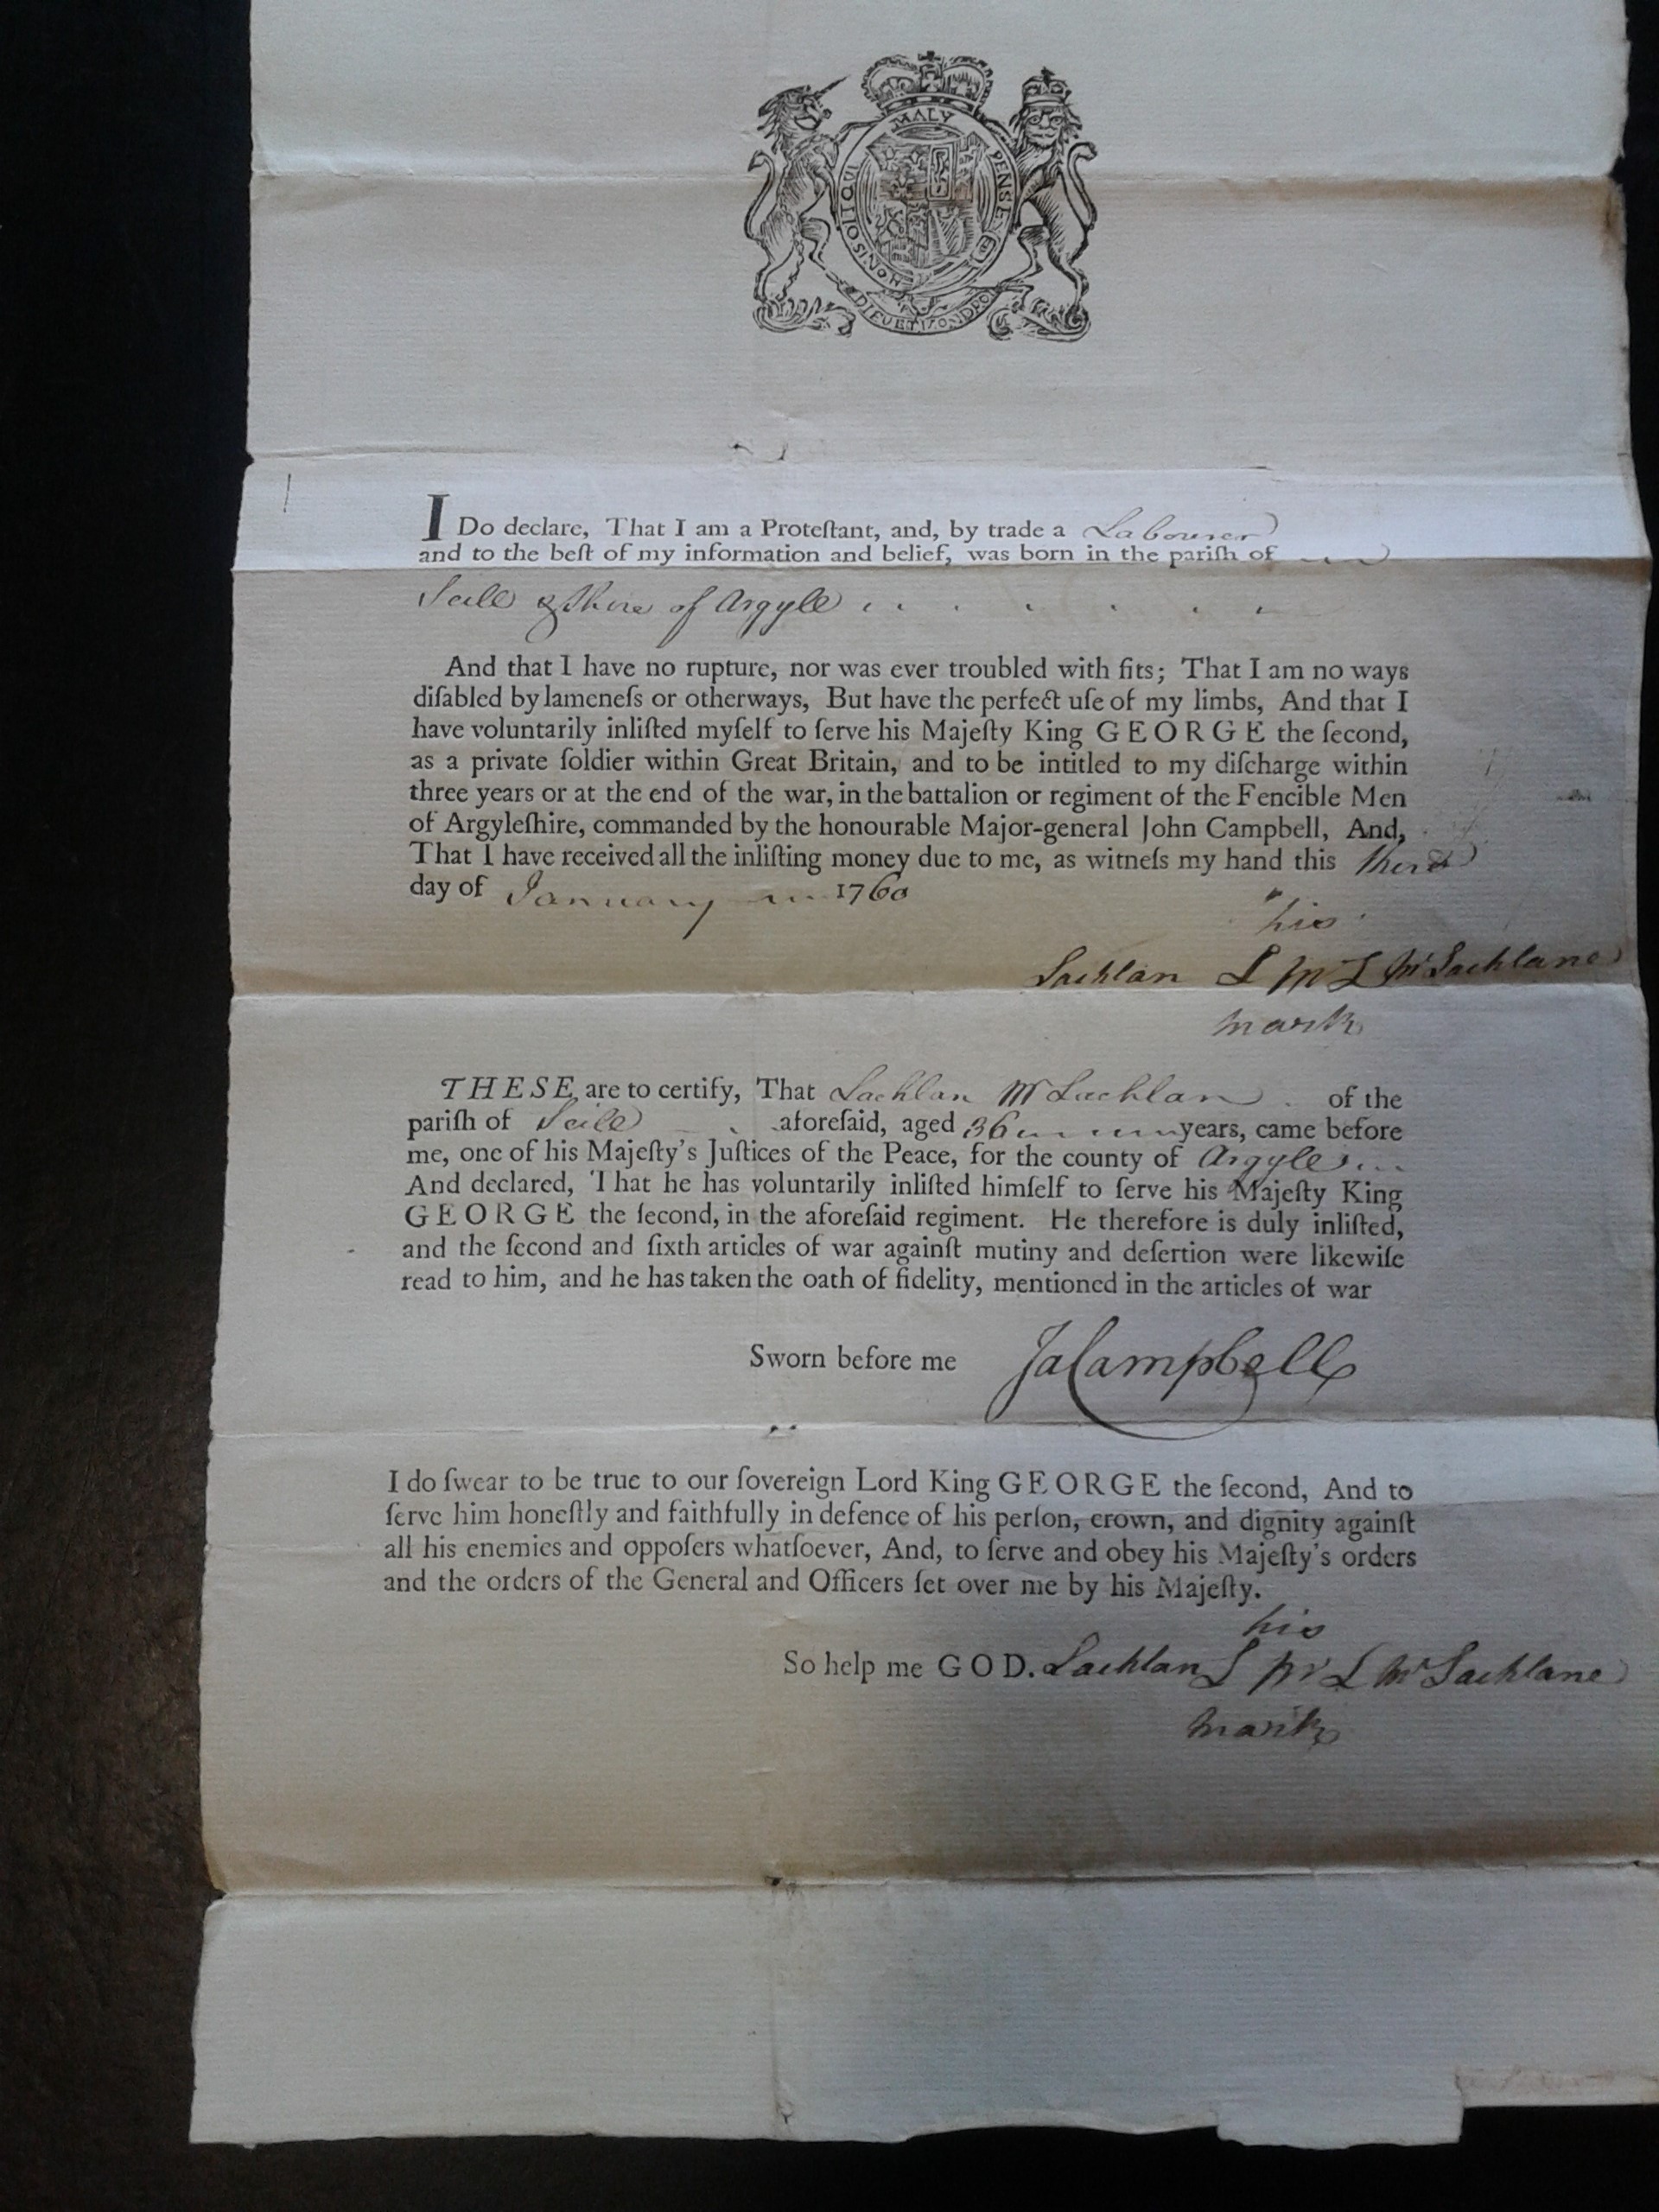 HONI SOIT QUI MAL Y PENSE
DIEU ET MON DROI
I Do declare, That I am a Proteſtant, and, by trade a Labourer
and to the beſt of my information and belief, was born in the pariſh of
Seile & Shire of Argyle
And that I have no rupture, nor was ever troubled with fits; That I am no ways
diſabled by lameneſs or otherways, But have the perfect uſe of my limbs, And that I
have voluntarily inliſted myſelf to ſerve his Majeſty King GEORGE the ſecond,
as a private ſoldier within Great Britain, and to be intitled to my diſcharge within
three years or at the end of the war, in the battalion or regiment of the Fencible Men
of Argyleſhire, commanded by the honourable Major-general John Campbell, And,
That I have received all the inliſting money due to me, as witneſs my hand this third
day of January 1760
his
Lachlan L McL McLachlane
mark
THESE are to certify, That Lachlan McLachlan of the
pariſh of Seile aforeſaid, aged 36 years, came before
me, one of his Majeſty's Juſtices of the Peace, for the county of Argyle
And declared, That he has voluntarily inliſted himſelf to ſerve his Majeſty King
GEORGE the ſecond, in the aforeſaid regiment. He therefore is duly inliſted,
and the ſecond and ſixth articles of war againſt mutiny and deſertion were likewiſe
read to him, and he has taken the oath of fidelity, mentioned in the articles of war
Sworn before me Ja Campbell
I do ſwear to be true to our ſovereign Lord King GEORGE the ſecond, And to
ſerve him honeſtly and faithfully in defence of his perſon, crown, and dignity againſt
all his enemies and oppoſers whatſoever, And, to ſerve and obey his Majeſty's orders
and the orders of the General and Officers ſet over me by his Majeſty.
his
So help me GOD. Lachlan L McL McLachlane
mark